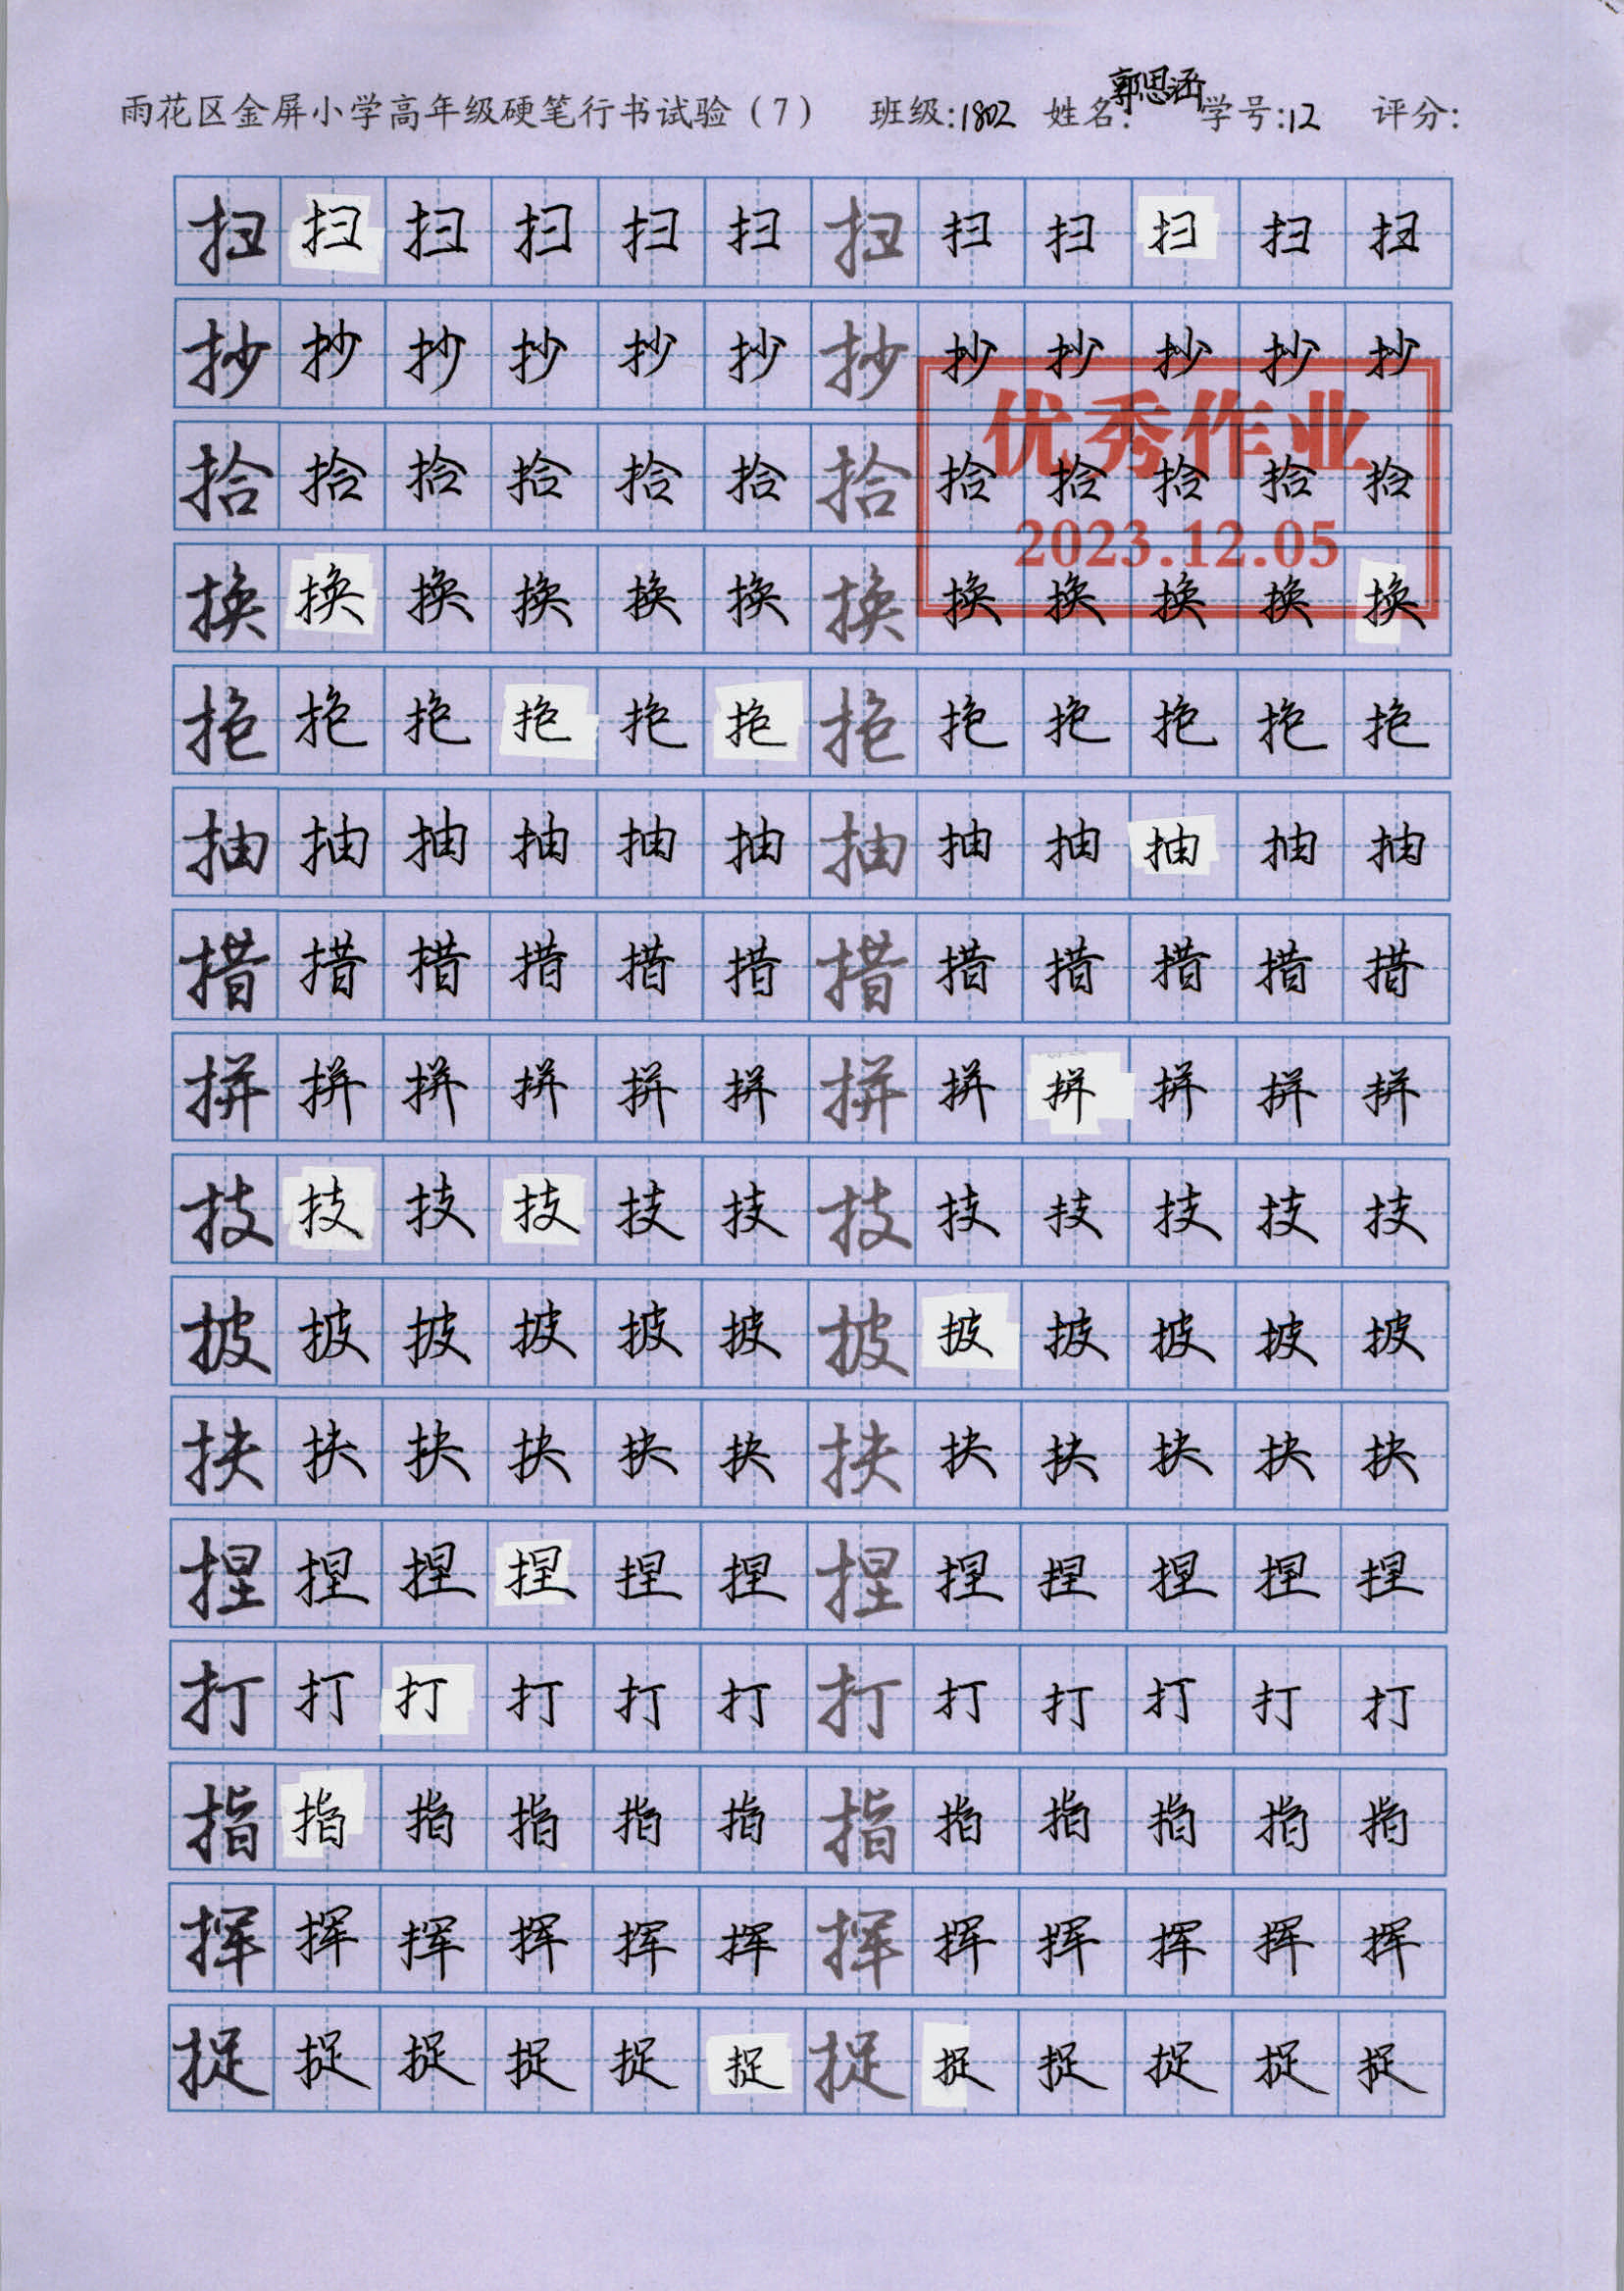 雨花区金屏小学高年级硬笔行书试验（7） 班级:1802 姓名:郭思涵 学号:12 评分:
扫扫扫扫扫扫扫扫扫扫扫扫
抄抄抄抄抄抄抄抄抄抄抄抄
优秀作业
拾拾拾拾拾拾拾拾拾拾拾拾
2023.12.05
换换换换换换换换换换换换
抱抱抱抱抱抱抱抱抱抱抱抱
抽抽抽抽抽抽抽抽抽抽抽抽
措措措措措措措措措措措措
拼拼拼拼拼拼拼拼拼拼拼拼
技技技技技技技技技技技技
披披披披披披披披披披披披
抉抉抉抉抉抉抉抉抉抉抉抉
捏捏捏捏捏捏捏捏捏捏捏捏
打打打打打打打打打打打打
指指指指指指指指指指指指
挥挥挥挥挥挥挥挥挥挥挥挥
捉捉捉捉捉捉捉捉捉捉捉捉